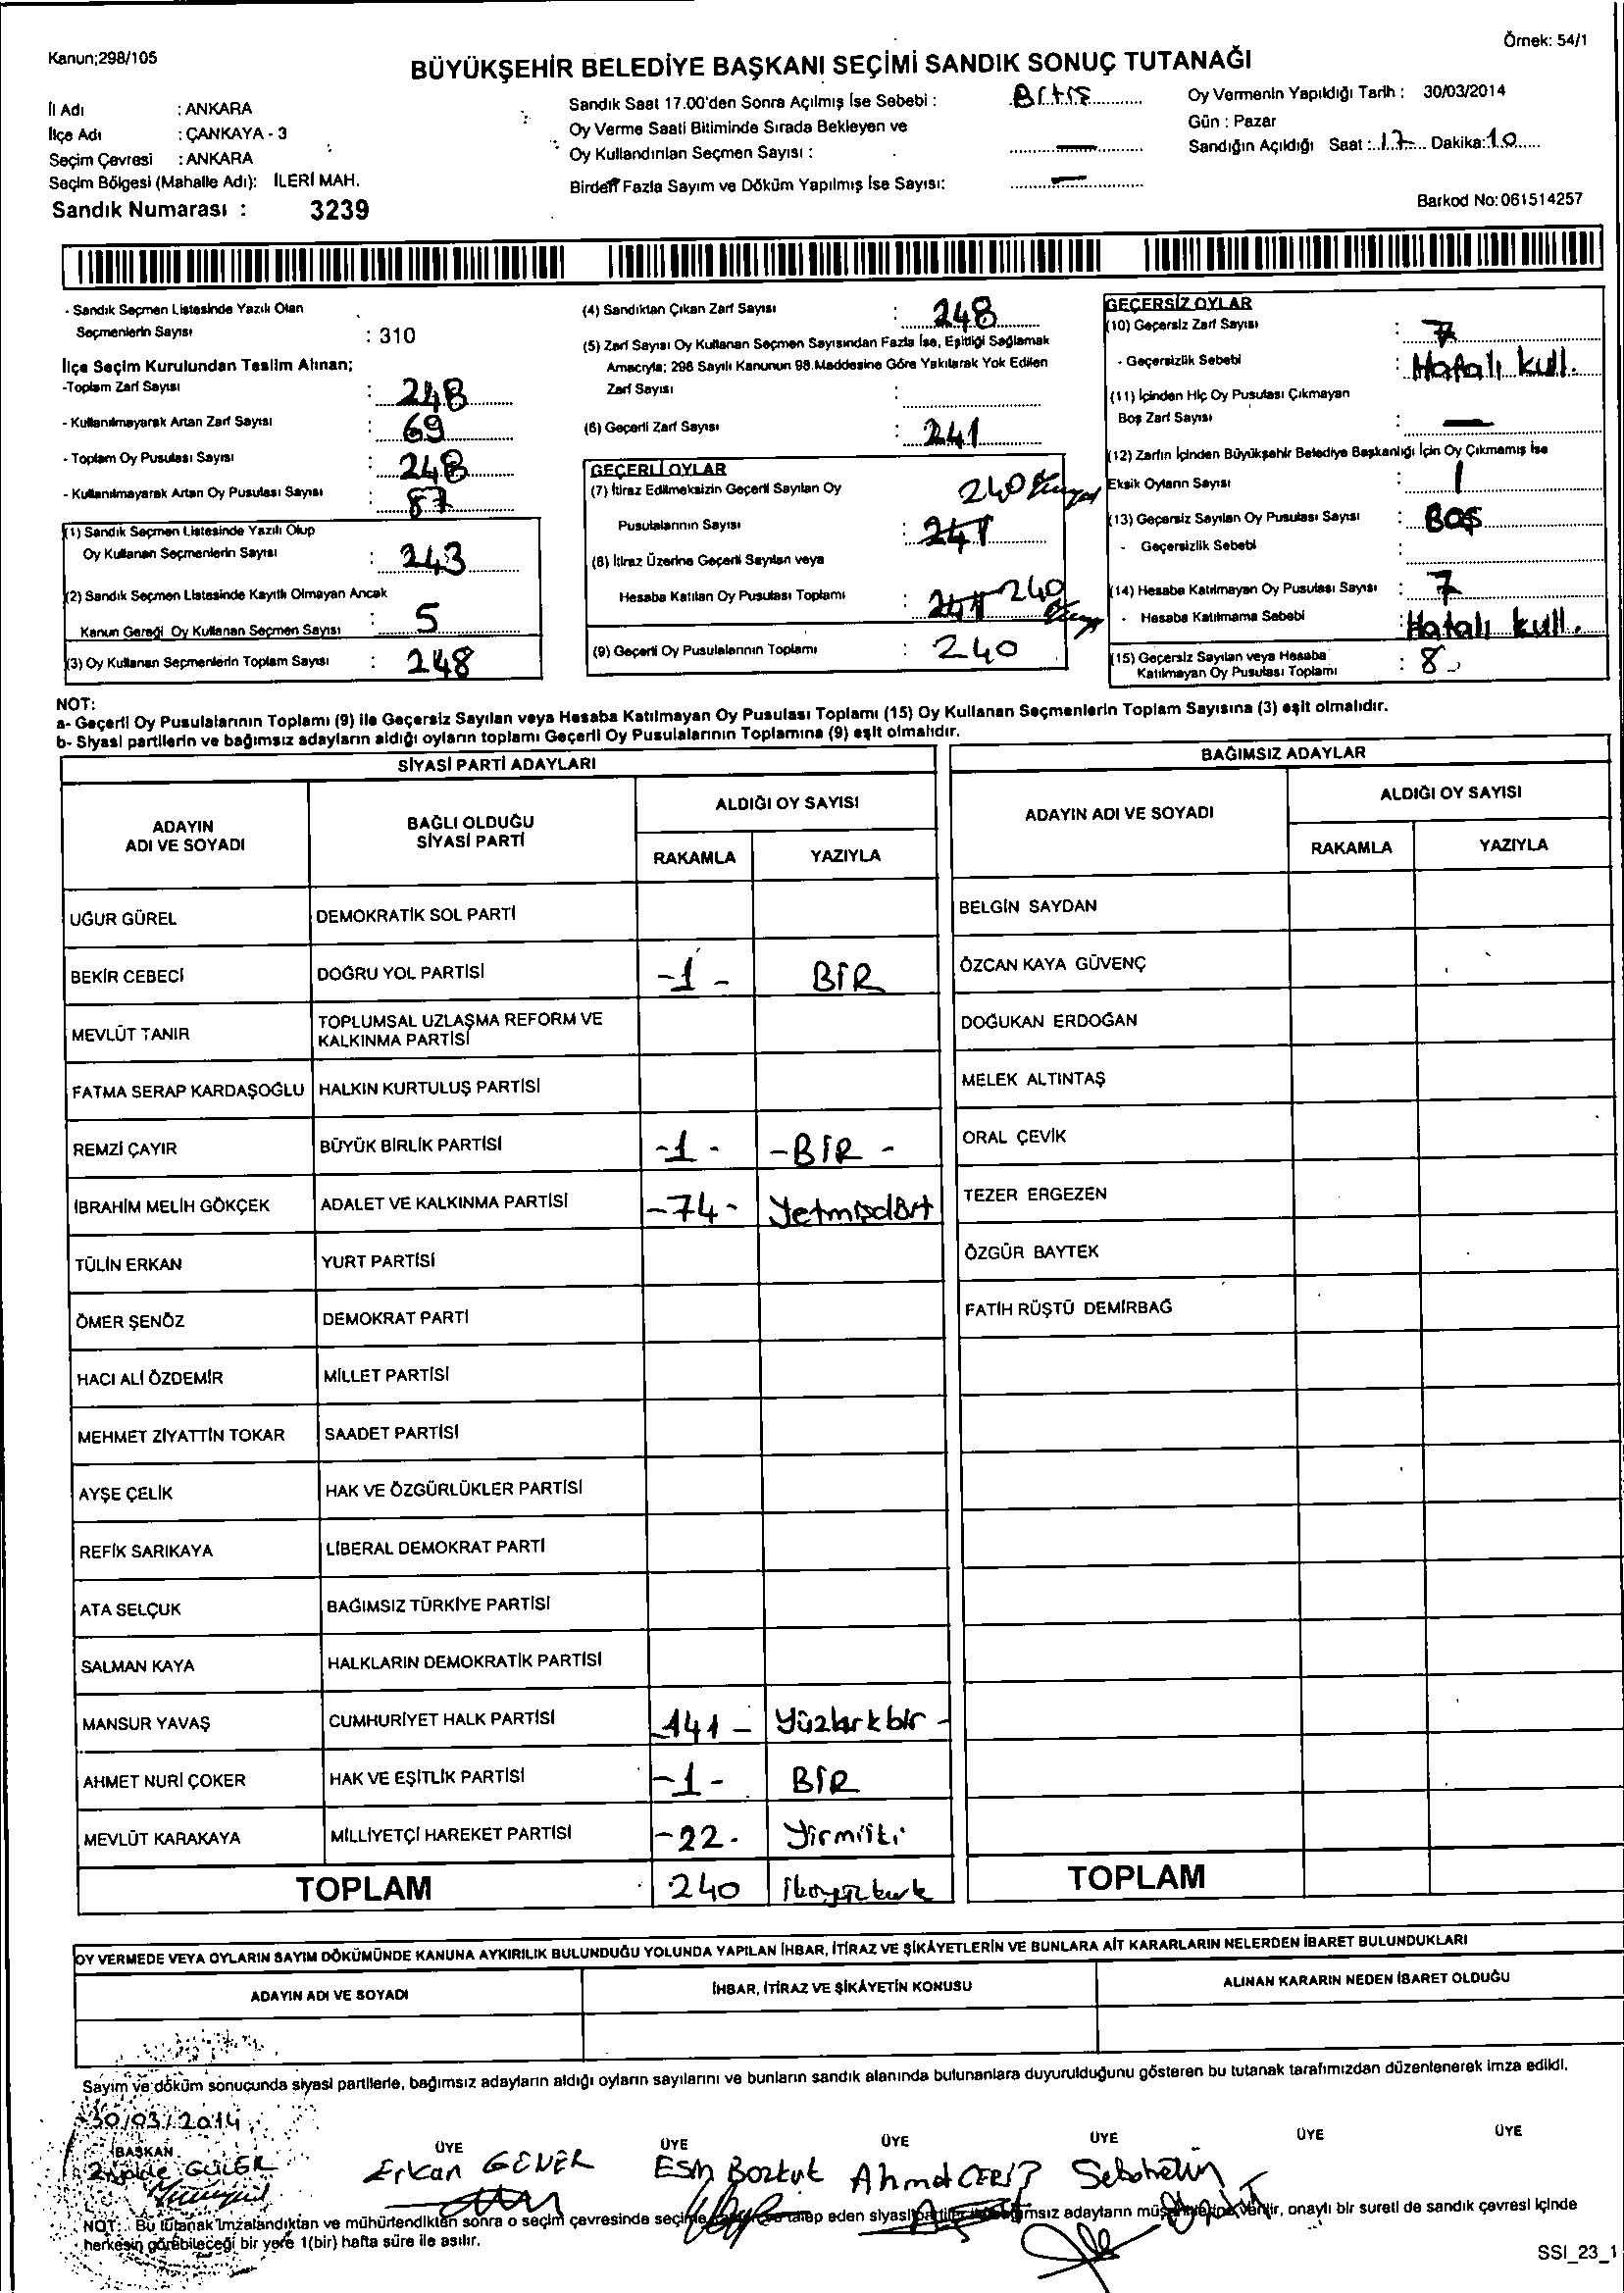 Kanun;298/105
Örnek: 54/1
BÜYÜKŞEHİR BELEDİYE BAŞKANI SEÇİMİ SANDIK SONUÇ TUTANAĞI
İl Adı : ANKARA
İlçe Adı : ÇANKAYA - 3
Seçim Çevresi : ANKARA
Seçim Bölgesi (Mahalle Adı): İLERİ MAH.
Sandık Numarası : 3239
Sandık Saat 17.00'den Sonra Açılmış İse Sebebi :
Oy Verme Saati Bitiminde Sırada Bekleyen ve
Oy Kullandırılan Seçmen Sayısı : —
Birden Fazla Sayım ve Döküm Yapılmış İse Sayısı: —
Oy Vermenin Yapıldığı Tarih : 30/03/2014
Gün : Pazar
Sandığın Açıldığı Saat : 17 Dakika: 10
Barkod No: 061514257
- Sandık Seçmen Listesinde Yazılı Olan
Seçmenlerin Sayısı : 310
İlçe Seçim Kurulundan Teslim Alınan;
-Toplam Zarf Sayısı : 248
- Kullanılmayarak Artan Zarf Sayısı : 69
- Toplam Oy Pusulası Sayısı : 248
- Kullanılmayarak Artan Oy Pusulası Sayısı : 87
(1) Sandık Seçmen Listesinde Yazılı Olup
Oy Kullanan Seçmenlerin Sayısı : 243
(2) Sandık Seçmen Listesinde Kayıtlı Olmayan Ancak
Kanun Gereği Oy Kullanan Seçmen Sayısı : 5
(3) Oy Kullanan Seçmenlerin Toplam Sayısı : 248
(4) Sandıktan Çıkan Zarf Sayısı : 248
(5) Zarf Sayısı Oy Kullanan Seçmen Sayısından Fazla İse, Eşitliği Sağlamak
Amacıyla; 298 Sayılı Kanunun 98.Maddesine Göre Yakılarak Yok Edilen
Zarf Sayısı :
(6) Geçerli Zarf Sayısı : 241
GEÇERLİ OYLAR
(7) İtiraz Edilmeksizin Geçerli Sayılan Oy 240
Pusulalarının Sayısı : 241
(8) İtiraz Üzerine Geçerli Sayılan veya
Hesaba Katılan Oy Pusulası Toplamı : 241 240
(9) Geçerli Oy Pusulalarının Toplamı : 240
GEÇERSİZ OYLAR
(10) Geçersiz Zarf Sayısı : 7
- Geçersizlik Sebebi : Hatalı kull.
(11) İçinden Hiç Oy Pusulası Çıkmayan
Boş Zarf Sayısı : —
(12) Zarfın İçinden Büyükşehir Belediye Başkanlığı İçin Oy Çıkmamış İse
Eksik Oyların Sayısı : 1
(13) Geçersiz Sayılan Oy Pusulası Sayısı : BOŞ
- Geçersizlik Sebebi :
(14) Hesaba Katılmayan Oy Pusulası Sayısı : 7
- Hesaba Katılmama Sebebi : Hatalı kull.
(15) Geçersiz Sayılan veya Hesaba
Katılmayan Oy Pusulası Toplamı : 8
NOT:
a- Geçerli Oy Pusulalarının Toplamı (9) ile Geçersiz Sayılan veya Hesaba Katılmayan Oy Pusulası Toplamı (15) Oy Kullanan Seçmenlerin Toplam Sayısına (3) eşit olmalıdır.
b- Siyasi partilerin ve bağımsız adayların aldığı oyların toplamı Geçerli Oy Pusulalarının Toplamına (9) eşit olmalıdır.
SİYASİ PARTİ ADAYLARI
ADAYIN ADI VE SOYADI BAĞLI OLDUĞU SİYASİ PARTİ ALDIĞI OY SAYISI
RAKAMLA YAZIYLA
UĞUR GÜREL DEMOKRATİK SOL PARTİ
BEKİR CEBECİ DOĞRU YOL PARTİSİ -1- BİR
MEVLÜT TANIR TOPLUMSAL UZLAŞMA REFORM VE KALKINMA PARTİSİ
FATMA SERAP KARDAŞOĞLU HALKIN KURTULUŞ PARTİSİ
REMZİ ÇAYIR BÜYÜK BİRLİK PARTİSİ -1- -BİR-
İBRAHİM MELİH GÖKÇEK ADALET VE KALKINMA PARTİSİ -74- Yetmişdört
TÜLİN ERKAN YURT PARTİSİ
ÖMER ŞENÖZ DEMOKRAT PARTİ
HACI ALİ ÖZDEMİR MİLLET PARTİSİ
MEHMET ZİYATTİN TOKAR SAADET PARTİSİ
AYŞE ÇELİK HAK VE ÖZGÜRLÜKLER PARTİSİ
REFİK SARIKAYA LİBERAL DEMOKRAT PARTİ
ATA SELÇUK BAĞIMSIZ TÜRKİYE PARTİSİ
SALMAN KAYA HALKLARIN DEMOKRATİK PARTİSİ
MANSUR YAVAŞ CUMHURİYET HALK PARTİSİ -141- Yüzkırkbir -
AHMET NURİ ÇOKER HAK VE EŞİTLİK PARTİSİ -1- BİR
MEVLÜT KARAKAYA MİLLİYETÇİ HAREKET PARTİSİ -22- Yirmiiki
TOPLAM 240 ikiyüzkırk
BAĞIMSIZ ADAYLAR
ADAYIN ADI VE SOYADI ALDIĞI OY SAYISI
RAKAMLA YAZIYLA
BELGİN SAYDAN
ÖZCAN KAYA GÜVENÇ
DOĞUKAN ERDOĞAN
MELEK ALTINTAŞ
ORAL ÇEVİK
TEZER ERGEZEN
ÖZGÜR BAYTEK
FATİH RÜŞTÜ DEMİRBAĞ
TOPLAM
OY VERMEDE VEYA OYLARIN SAYIM DÖKÜMÜNDE KANUNA AYKIRILIK BULUNDUĞU YOLUNDA YAPILAN İHBAR, İTİRAZ VE ŞİKÂYETLERİN VE BUNLARA AİT KARARLARIN NELERDEN İBARET BULUNDUKLARI
ADAYIN ADI VE SOYADI İHBAR, İTİRAZ VE ŞİKÂYETİN KONUSU ALINAN KARARIN NEDEN İBARET OLDUĞU
Sayım ve döküm sonucunda siyasi partilerle, bağımsız adayların aldığı oyların sayılarını ve bunların sandık alanında bulunanlara duyurulduğunu gösteren bu tutanak tarafımızdan düzenlenerek imza edildi.
30/03/2014
BAŞKAN ÜYE ÜYE ÜYE ÜYE ÜYE ÜYE
GÜLER Erkan GENER Bozkut Ahmet
NOT: Bu tutanak imzalandıktan ve mühürlendikten sonra o seçim çevresinde seçime talep eden siyasi bağımsız adayların verilir, onaylı bir sureti de sandık çevresi içinde
herkesin görebileceği bir yere 1(bir) hafta süre ile asılır.
SSI_23_1